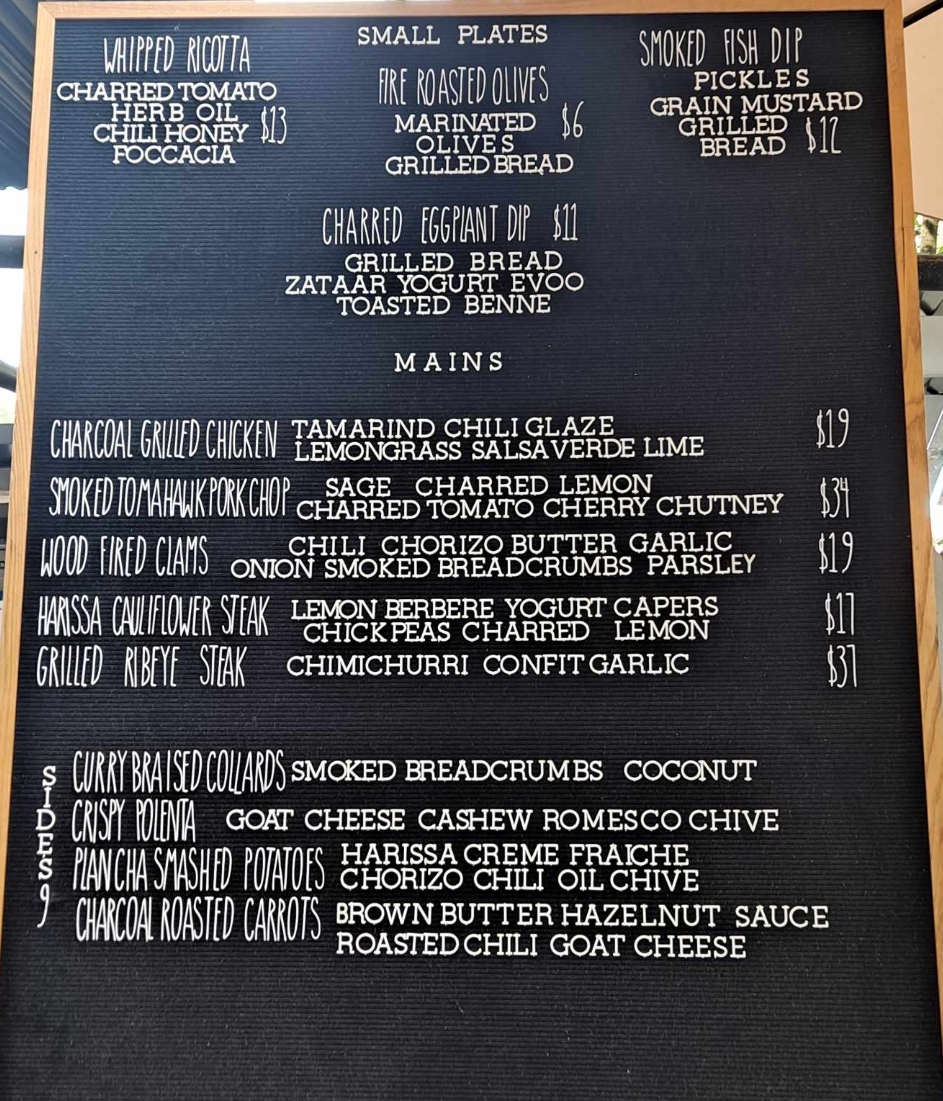 SMALL PLATES
WHIPPED RICOTTA
CHARRED TOMATO
HERB OIL
CHILI HONEY $13
FOCCACIA
FIRE ROASTED OLIVES
MARINATED $6
OLIVES
GRILLED BREAD
SMOKED FISH DIP
PICKLES
GRAIN MUSTARD
GRILLED $12
BREAD
CHARRED EGGPLANT DIP $11
GRILLED BREAD
ZATAAR YOGURT EVOO
TOASTED BENNE
MAINS
CHARCOAL GRILLED CHICKEN TAMARIND CHILI GLAZE $19
LEMONGRASS SALSA VERDE LIME
SMOKED TOMAHAWK PORK CHOP SAGE CHARRED LEMON $34
CHARRED TOMATO CHERRY CHUTNEY
WOOD FIRED CLAMS CHILI CHORIZO BUTTER GARLIC $19
ONION SMOKED BREADCRUMBS PARSLEY
HARISSA CAULIFLOWER STEAK LEMON BERBERE YOGURT CAPERS $17
CHICKPEAS CHARRED LEMON
GRILLED RIBEYE STEAK CHIMICHURRI CONFIT GARLIC $37
SIDES 9
CURRY BRAISED COLLARDS SMOKED BREADCRUMBS COCONUT
CRISPY POLENTA GOAT CHEESE CASHEW ROMESCO CHIVE
PLANCHA SMASHED POTATOES HARISSA CREME FRAICHE
CHORIZO CHILI OIL CHIVE
CHARCOAL ROASTED CARROTS BROWN BUTTER HAZELNUT SAUCE
ROASTED CHILI GOAT CHEESE